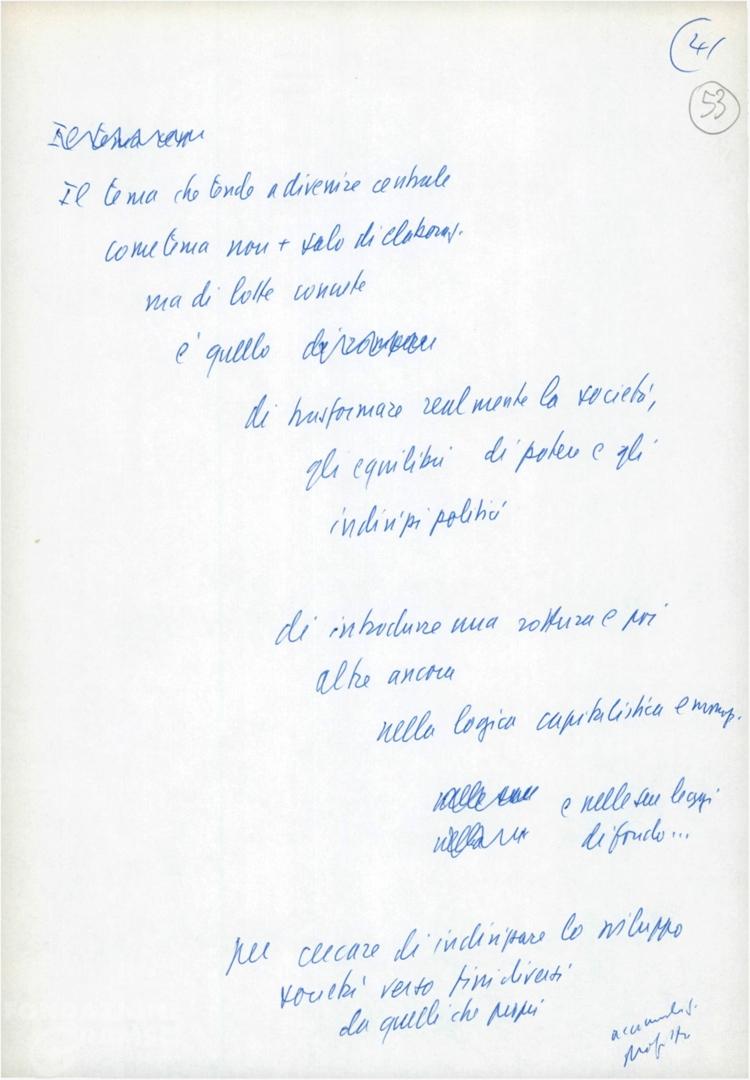 41
53
Il tema che tende a divenire centrale
come tema non + solo di elaboraz.
ma di lotte concrete
e' quello
di trasformare realmente la società,
gli equilibri di potere e gli
indirizzi politici
di introdurre una rottura e poi
altre ancora
nella logica capitalistica e monop.
e nelle sue leggi
di fondo...
per cercare di indirizzare lo sviluppo
società verso fini diversi
da quelli che
accumulaz.
profitto